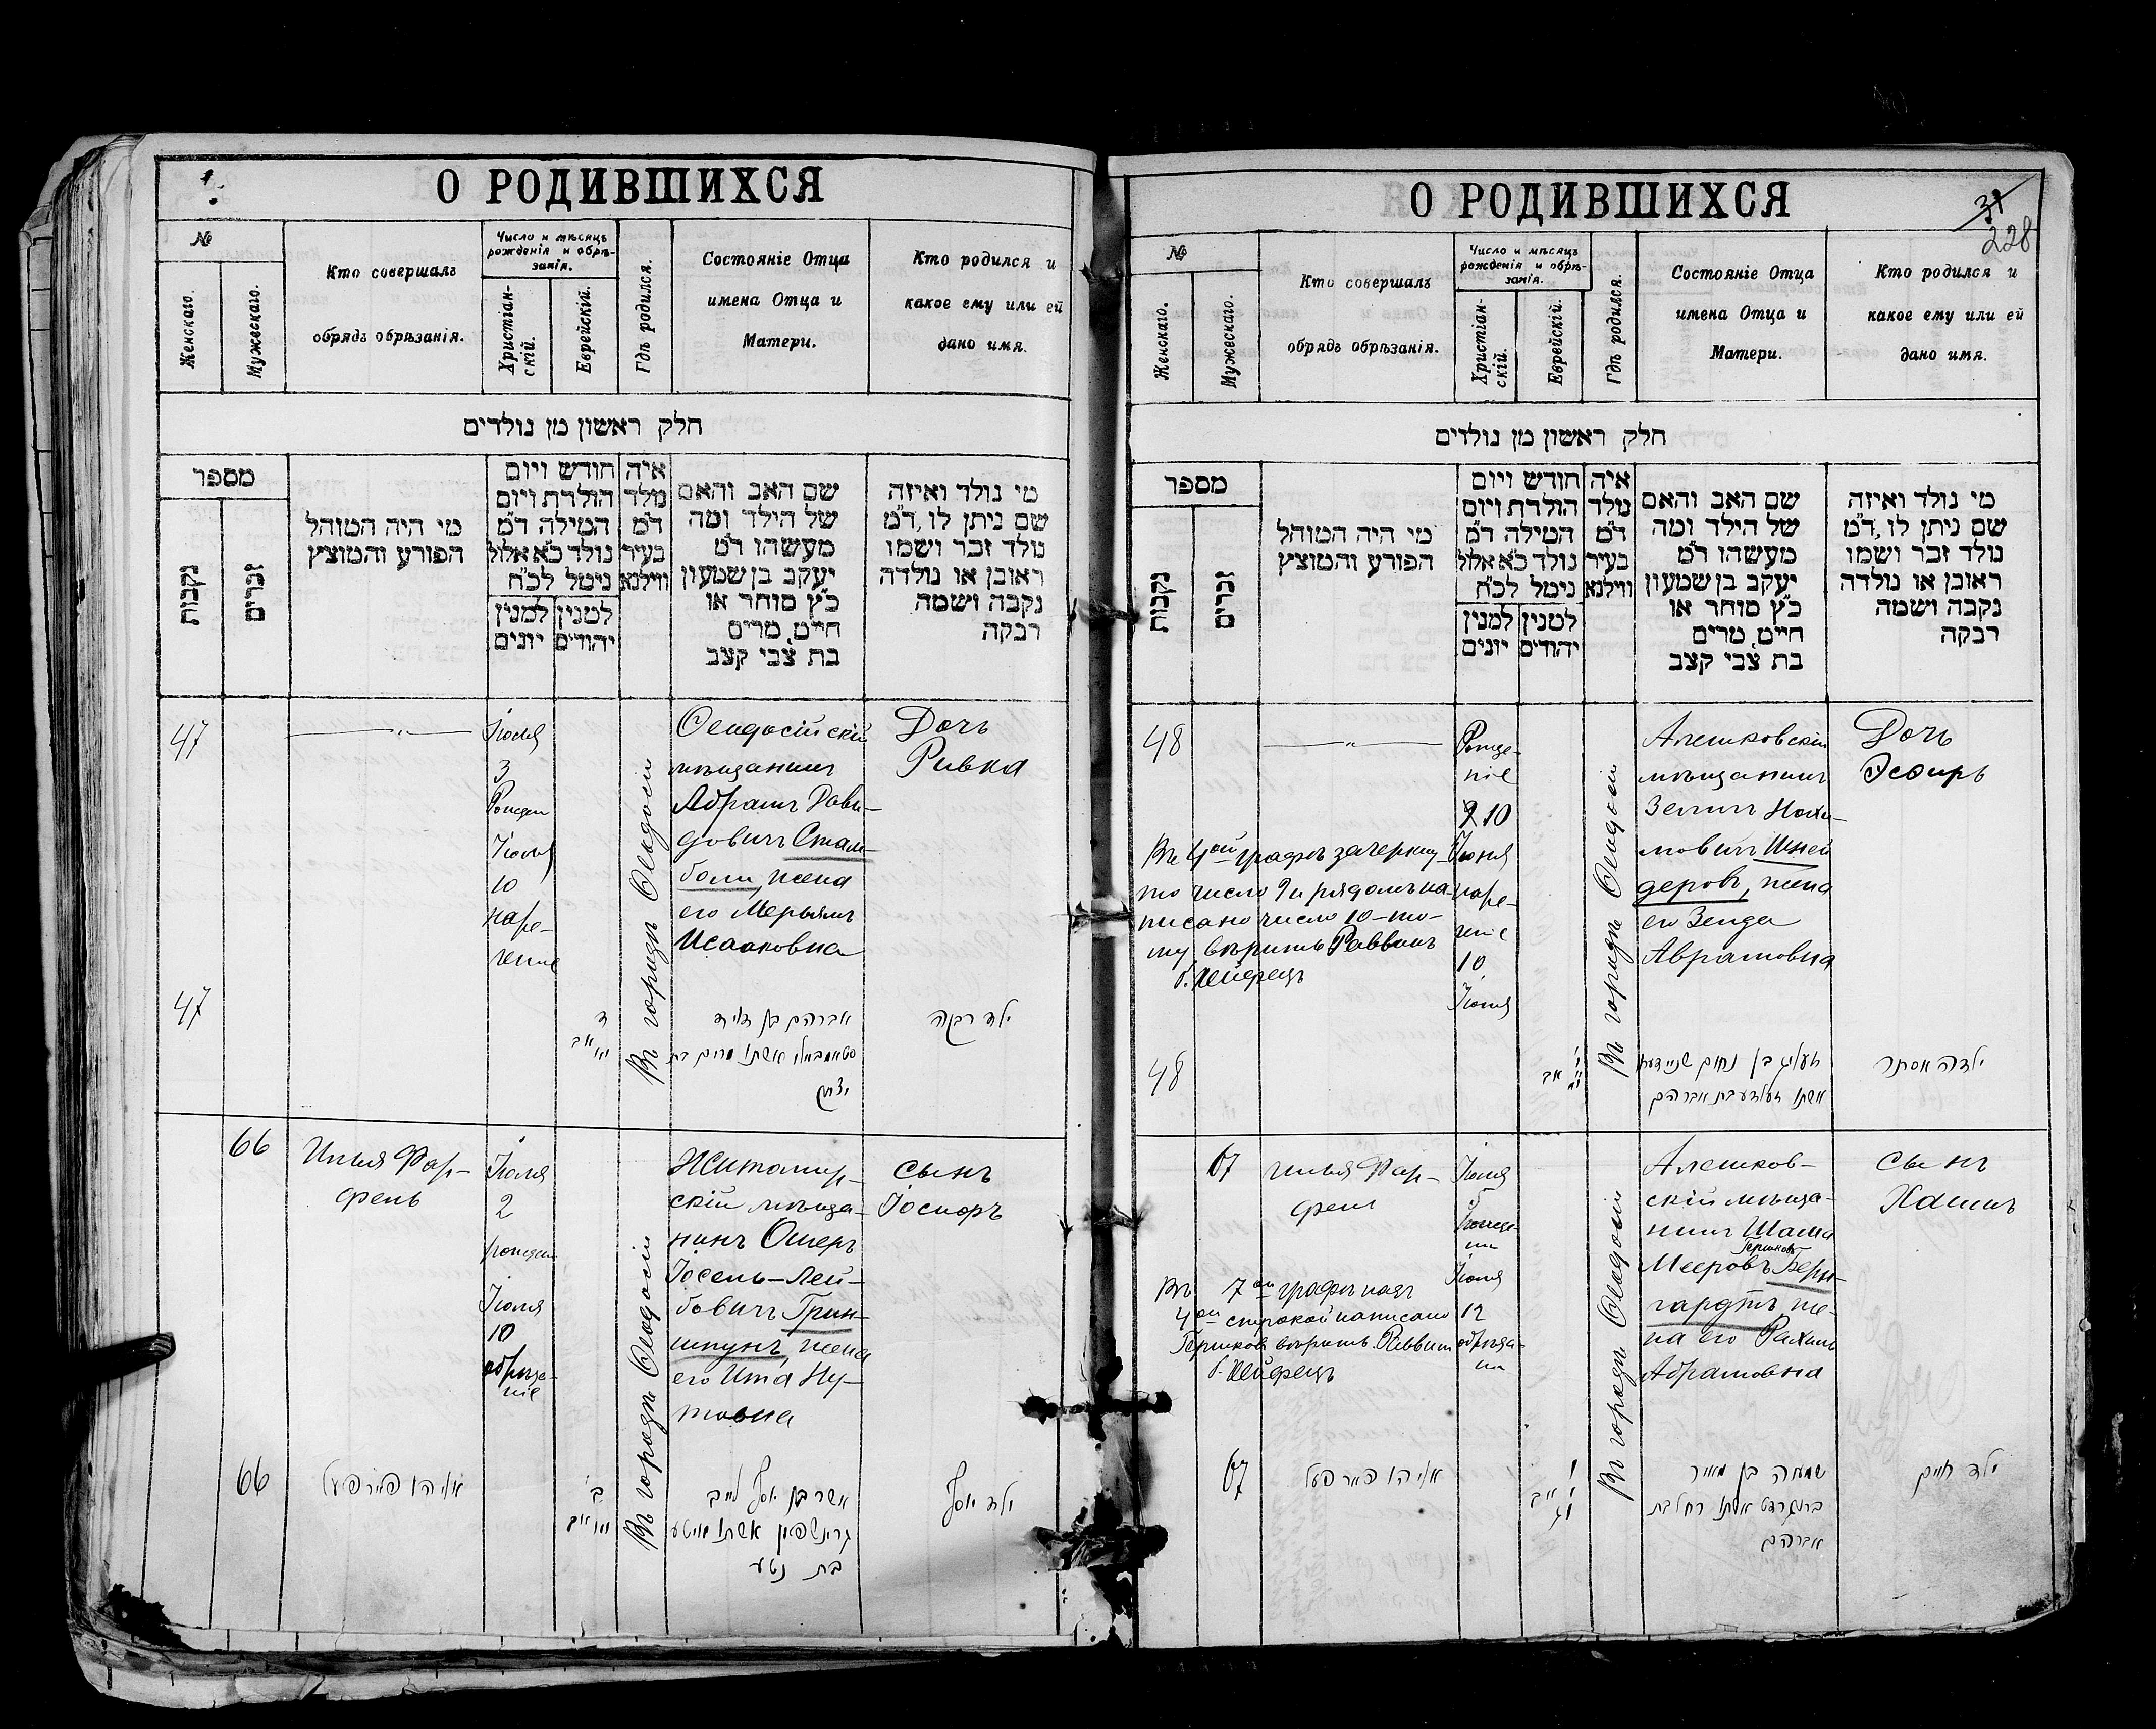 О РОДИВШИХСЯ
№
Женскаго.
Мужескаго.
Кто совершалъ
обрядъ обрѣзанія.
Число и мѣсяцъ
рожденія и обрѣ-
занія.
Христіан-
скій.
Еврейскій.
Гдѣ родился.
Состояніе Отца
имена Отца и
Матери.
Кто родился и
какое ему или ей
дано имя.
חלק ראשון מן נולדים
מספר
נקבות
זכרים
מי היה המוהל
הפורע והמוצץ
חודש ויום
הולדת ויום
המילה ד״מ
נולד כ״א אלול
ניטל לכ״ח
למנין
יהודים
למנין
יונים
איה
נולד
ד״מ
בעיר
ווילנא
שם האב והאם
של הילד ומה
מעשהו ד״מ
יעקב בן שמעון
כ״ץ סוחר או
חייט, מרים
בת צבי קצב
מי נולד ואיזה
שם ניתן לו, ד״מ
נולד זכר ושמו
ראובן או נולדה
נקבה ושמה
רבקה
47
Іюля
3
Рожден
Іюля
10
наре-
ченіе
Въ городѣ Ѳеодосіи
Ѳеодосійскій
мѣщанинъ
Абрамъ Дави-
довичъ Стам-
боли, жена
его Мерьямъ
Исааковна
Дочь
Ривка
47
אברהם בן דוד
סטאמבולי אשתו מרים בת
יצחק
ילדה רבקה
66
Илья Фар-
фель
Іюля
2
рожден
Іюля
10
обрѣза-
ніе
Въ городѣ Ѳеодосіи
Житомир-
скій мѣща-
нинъ Ошеръ
Іосель-Лей-
бовичъ Грин-
шпунъ, жена
его Ита Ну-
товна
сынъ
Іосифъ
66
אליהו פארפעל
ב׳
אשר בן יוסף לייב
גרינשפון אשתו איטע
בת נטע
ילד יוסף
О РОДИВШИХСЯ
31
228
№
Женскаго.
Мужескаго.
Кто совершалъ
обрядъ обрѣзанія.
Число и мѣсяцъ
рожденія и обрѣ-
занія.
Христіан-
скій.
Еврейскій.
Гдѣ родился.
Состояніе Отца
имена Отца и
Матери.
Кто родился и
какое ему или ей
дано имя.
חלק ראשון מן נולדים
מספר
נקבות
זכרים
מי היה המוהל
הפורע והמוצץ
חודש ויום
הולדת ויום
המילה ד״מ
נולד כ״א אלול
ניטל לכ״ח
למנין
יהודים
למנין
יונים
איה
נולד
ד״מ
בעיר
ווילנא
שם האב והאם
של הילד ומה
מעשהו ד״מ
יעקב בן שמעון
כ״ץ סוחר או
חייט, מרים
בת צבי קצב
מי נולד ואיזה
שם ניתן לו, ד״מ
נולד זכר ושמו
ראובן או נולדה
נקבה ושמה
רבקה
48
Рожде-
ніе
9 10
Іюля
наре-
ченіе
10
Іюля
Въ 4ой графѣ зачеркну-
то число 9 и рядомъ на-
писано число 10-то-
му вѣрить Раввинъ
Въ городѣ Ѳеодосіи
Алешковскій
мѣщанинъ
Зелигъ Нохи-
мовичъ Шней
деровъ, жена
его Зелда
Аврамовна
Дочь
Эсфирь
48
זעליג בן נחום
אשתו זעלדע בת אברהם
ילדה אסתר
67
Илья Фар-
фель
Іюля
5
рожде-
ніи
Іюля
12
обрѣза-
ніи
Въ 7ой графѣ надъ
4ой строкой написано
Гершковъ вѣрить Раввинъ
Въ городѣ Ѳеодосіи
Алешков-
скій мѣща-
нинъ Шама
Гершковъ
Мееровъ Берн-
гардтъ, же-
на его Рахиль
Абрамовна
сынъ
Хаимъ
67
אליהו פארפעל
שמעיה בן מאיר
בערנגארדט אשתו רחל בת
אברהם
ילד חיים